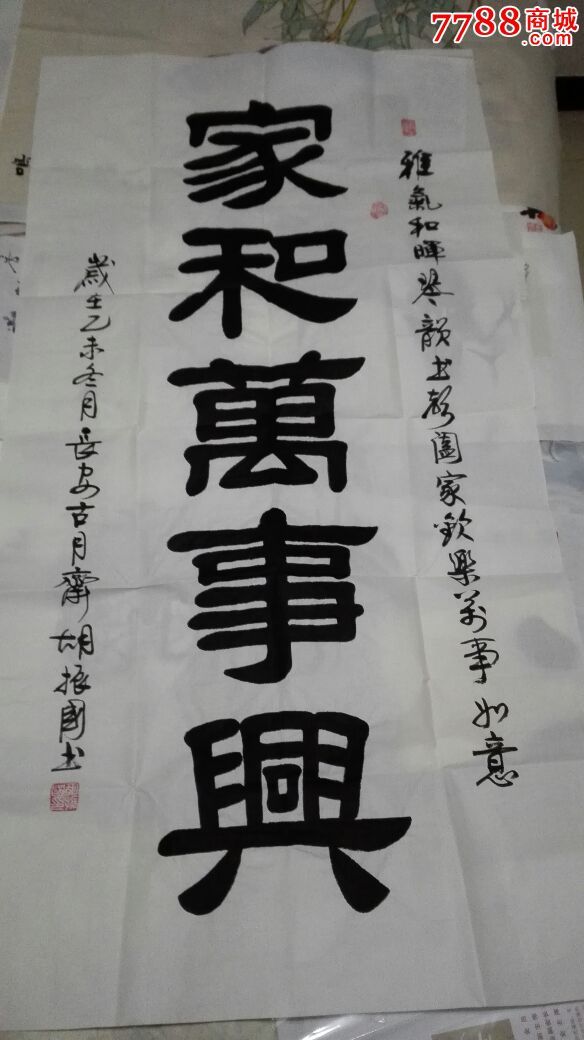 7788商城
.com
雅氣和暉琴韻書聲闔家歡樂萬事如意
家和萬事興
歲在乙未冬月長安古月齋胡振國書